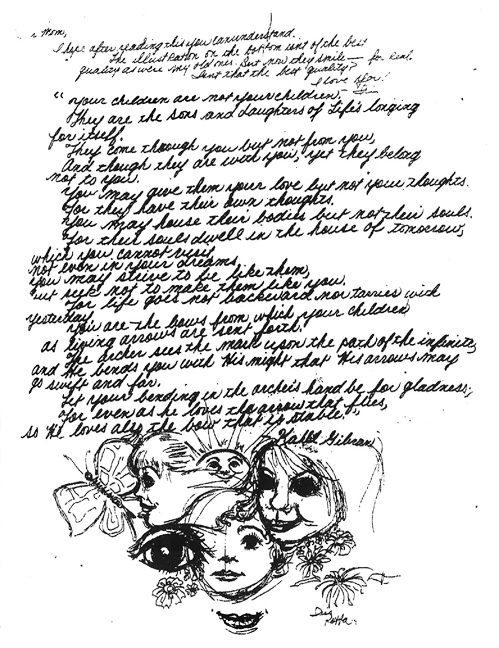 Mom,
I hope after reading this you can understand.
The illustration on the bottom isnt of the best
quality as were my old ones. But now they smile — for Real.
Isnt that the best quality?
I love you!
"Your children are not your children,
They are the sons and daughters of Life's longing
for itself.
They come through you but not from you,
And though they are with you, yet they belong
not to you.
You may give them your love but not your thoughts.
For they have their own thoughts.
You may house their bodies but not their souls.
For their souls dwell in the house of tomorrow,
which you cannot visit,
not even in your dreams.
You may strive to be like them,
but seek not to make them like you.
For life goes not backward nor tarries with
yesterday.
You are the bows from which your children
as living arrows are sent forth.
The archer sees the mark upon the path of the infinite,
and He bends you with His might that His arrows may
go swift and far.
Let your bending in the archer's hand be for gladness;
For even as he loves the arrow that flies,
so He loves also the bow that is stable."
Gibran